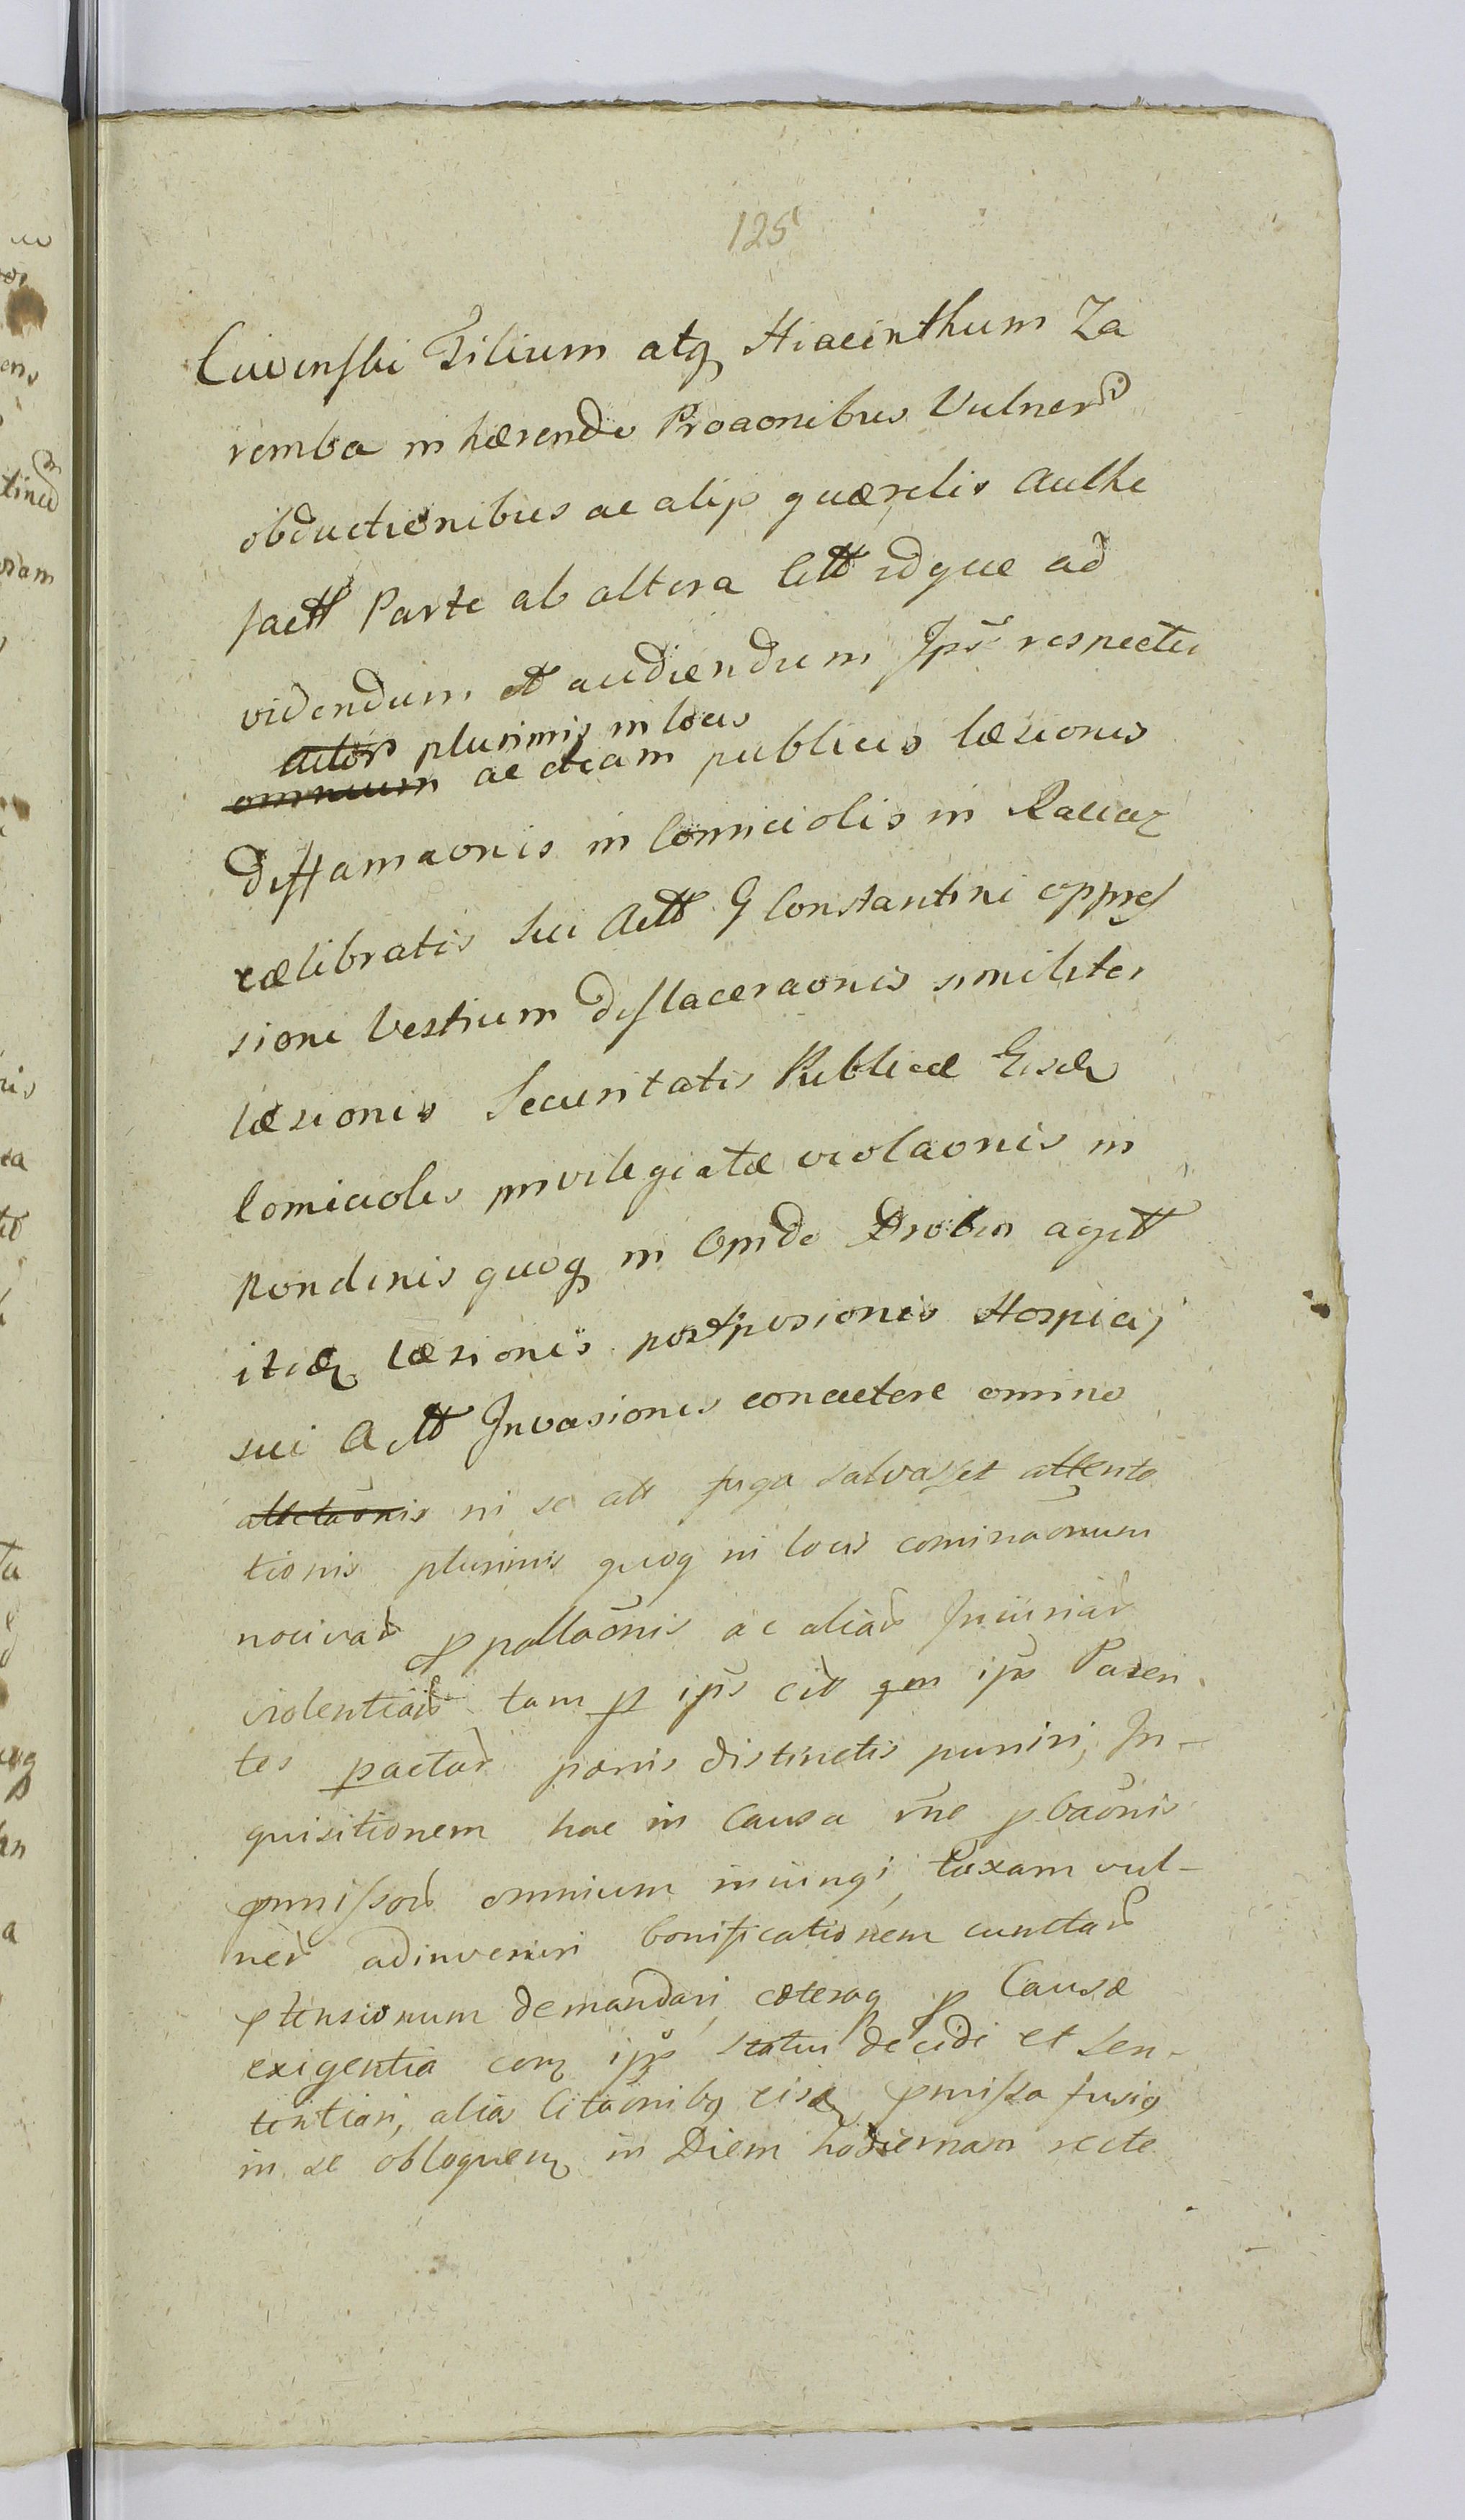 125
Ciwinski Filium atq Hiacinthum Za
remba in hærendo Proaonibus Vulner
obductionibus ac alijs quærelis authe
factt Parte ab altera Citt idque ad
videndum et audiendum Ips respectu
actor plurimis in locis
omnium ac etiam publicis læsionis
diffamaonis in Comiciolis in Raciąz
cælibratis sui Actt G Constantini oppres
sioni Vestium dislaceraonis similiter
læsionis Securitatis Publicæ Eisdē
Comiciolis privilegiatæ violaonis in
Nundinis quoq in Opido Drobin agitt
itidē læsionis postposionis Hospicij
sui Actt Invasionis concutere omino
attetaonis ni se att fuga salvasset attenta
tionis plurimis quoq in locis cominaonum
nocivar ppallaonis ac aliar Iniuriar
violentiar tam p ips citt qm ips Paren
tes pactar pænis distinctis puniri, In-
quisitionem hac in Causa rne pbaonis
pmissor omnium iniungi, taxam vul-
ner adinveniri bonificationem cunctar
ptensionum demandari, cæteraq p Causæ
exigentia cora ips statui decidi et sen-
tentiari, alias Citaonibq eisd pmissa fusiq
in se obloquen in Diem hodiernam recte